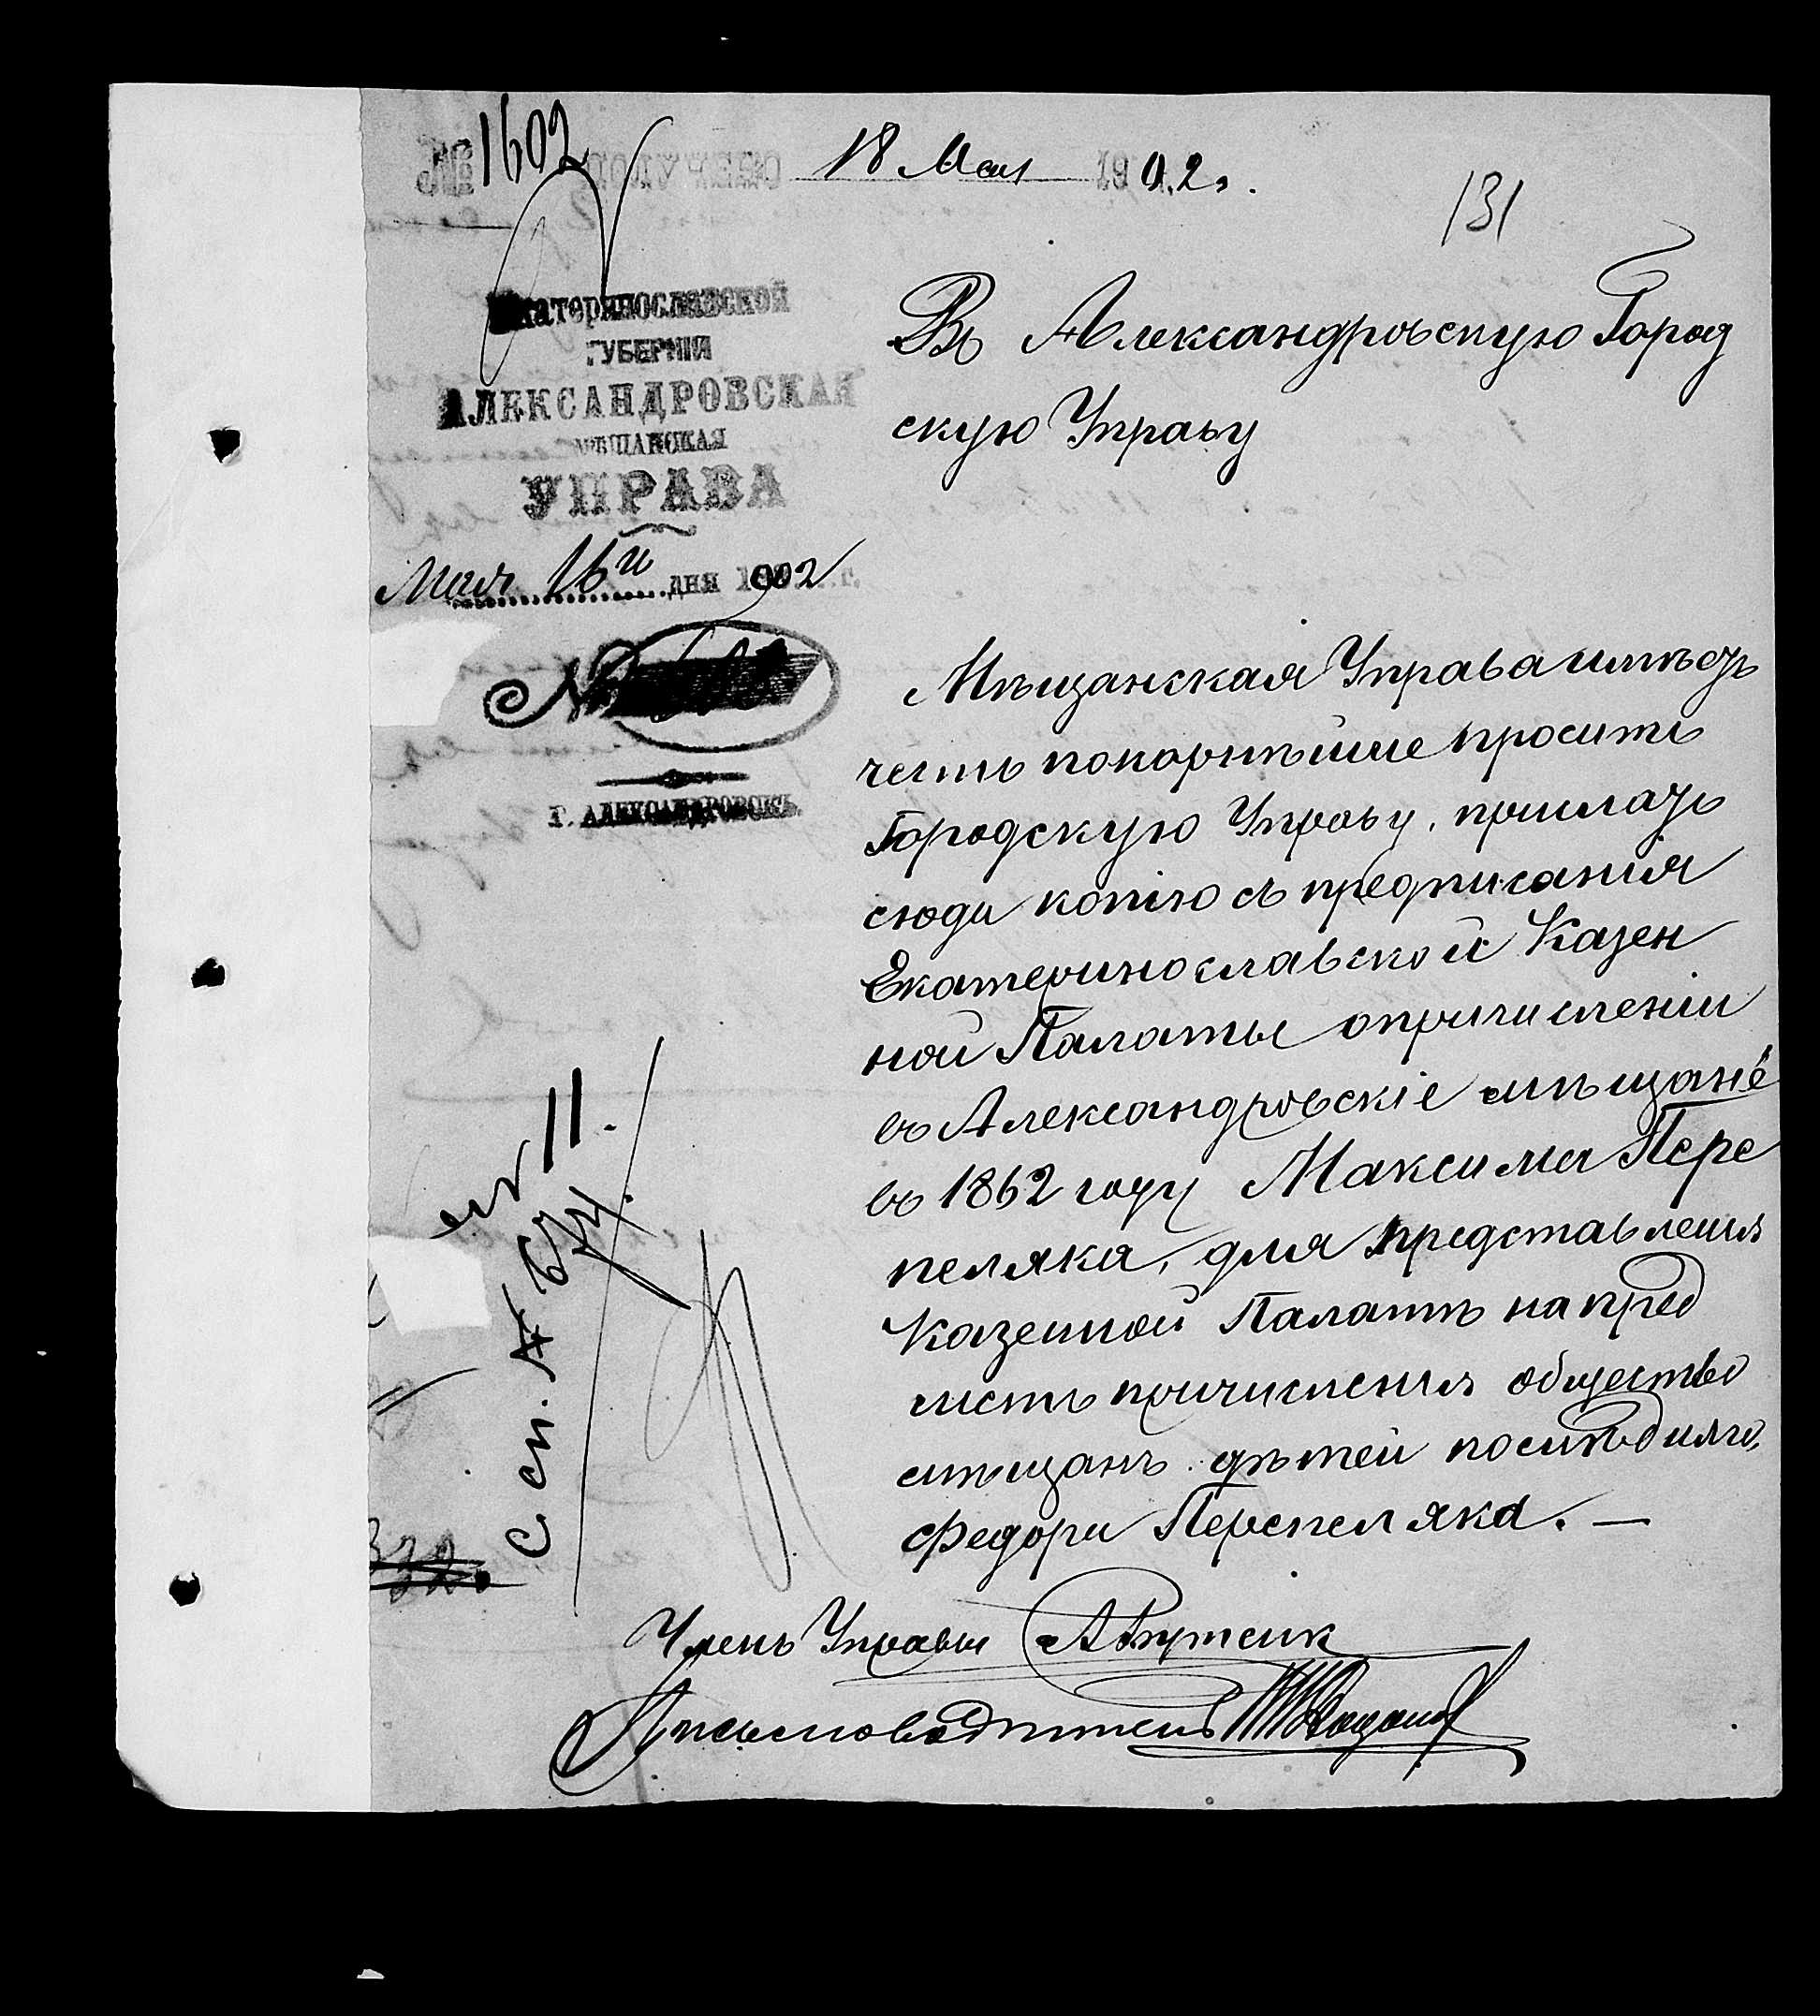 № 1602 ПОЛУЧЕНО 18 Мая 1902 г.
131
Екатеринославской
ГУБЕРНІИ
АЛЕКСАНДРОВСКАЯ
МѢЩАНСКАЯ
УПРАВА
Мая 16 дня 1902 г.
№
Г. АЛЕКСАНДРОВСКЪ.
Въ Александровскую Город
скую Управу
Мѣщанская Управа имѣетъ
честь покорнѣйше просить
Городскую Управу, прислать
сюда копію съ предписанія
Екатеринославской Казен
ной Палаты о причисленіи
въ Александровскіе мѣщане
въ 1862 году Максима Пере
пеляка, для представленія
Казенной Палатѣ на пред
метъ причисленія общество
мѣщанъ дѣтей послѣдняго,
Федора Перепеляка. —
С сп. А
332
Членъ Управы
Письмоводитель